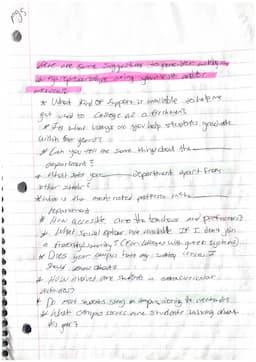 pg 5
Here are some suggestions to consider asking
a representative using your
* What kind of support is available to help me
get used to College as a freshmen?
* In what ways do you help students graduate
within four years?
* Can you tell me some thing about the
department?
* What sets your Department apart from
other schools?
* Who is the most noted professors in the
department
* How accessible are the teachers and professors?
* What social options are available if I don't join
a fraternity/sorority? (For colleges with greek systems)
* Does your campus have any safety issues I
should know about?
* How involved are students in extracurricular
activities?
* Do most students stay on campus during the weekends
* What campus issues are students talking about
this year?